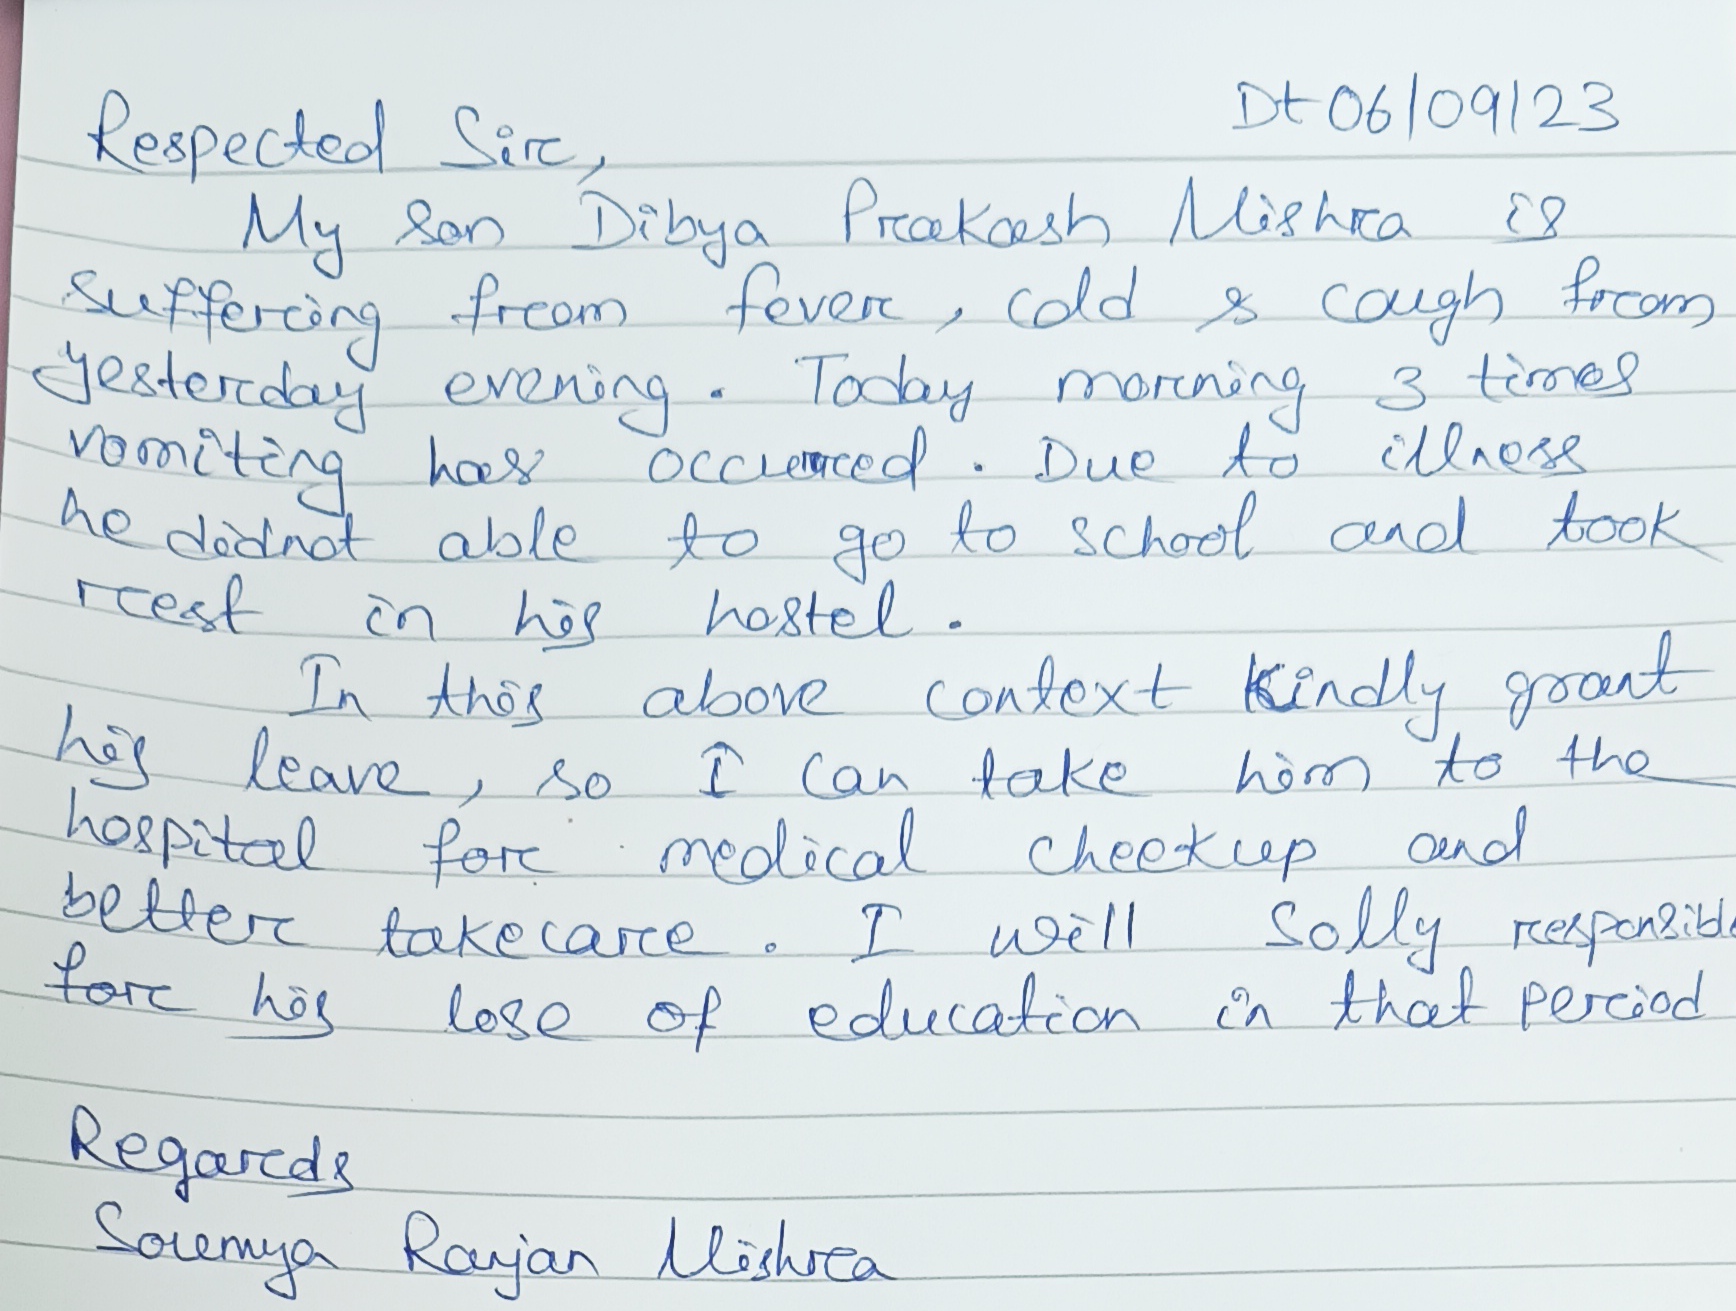 Dt 06/09/23
Respected Sir,
My son Dibya Prakash Mishra is
suffering from fever, cold & cough from
yesterday evening. Today morning 3 times
vomiting has occurred. Due to illness
he didnot able to go to school and took
rest in his hostel.
In this above context kindly grant
his leave, so I can take him to the
hospital for medical checkup and
better takecare. I will Solly responsible
for his lose of education in that period
Regards
Soumya Ranjan Mishra